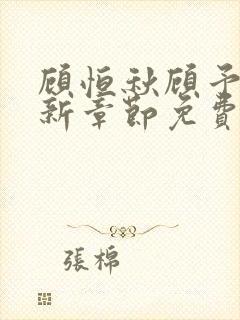 顾恒秋顾予
新章節免費
張棉